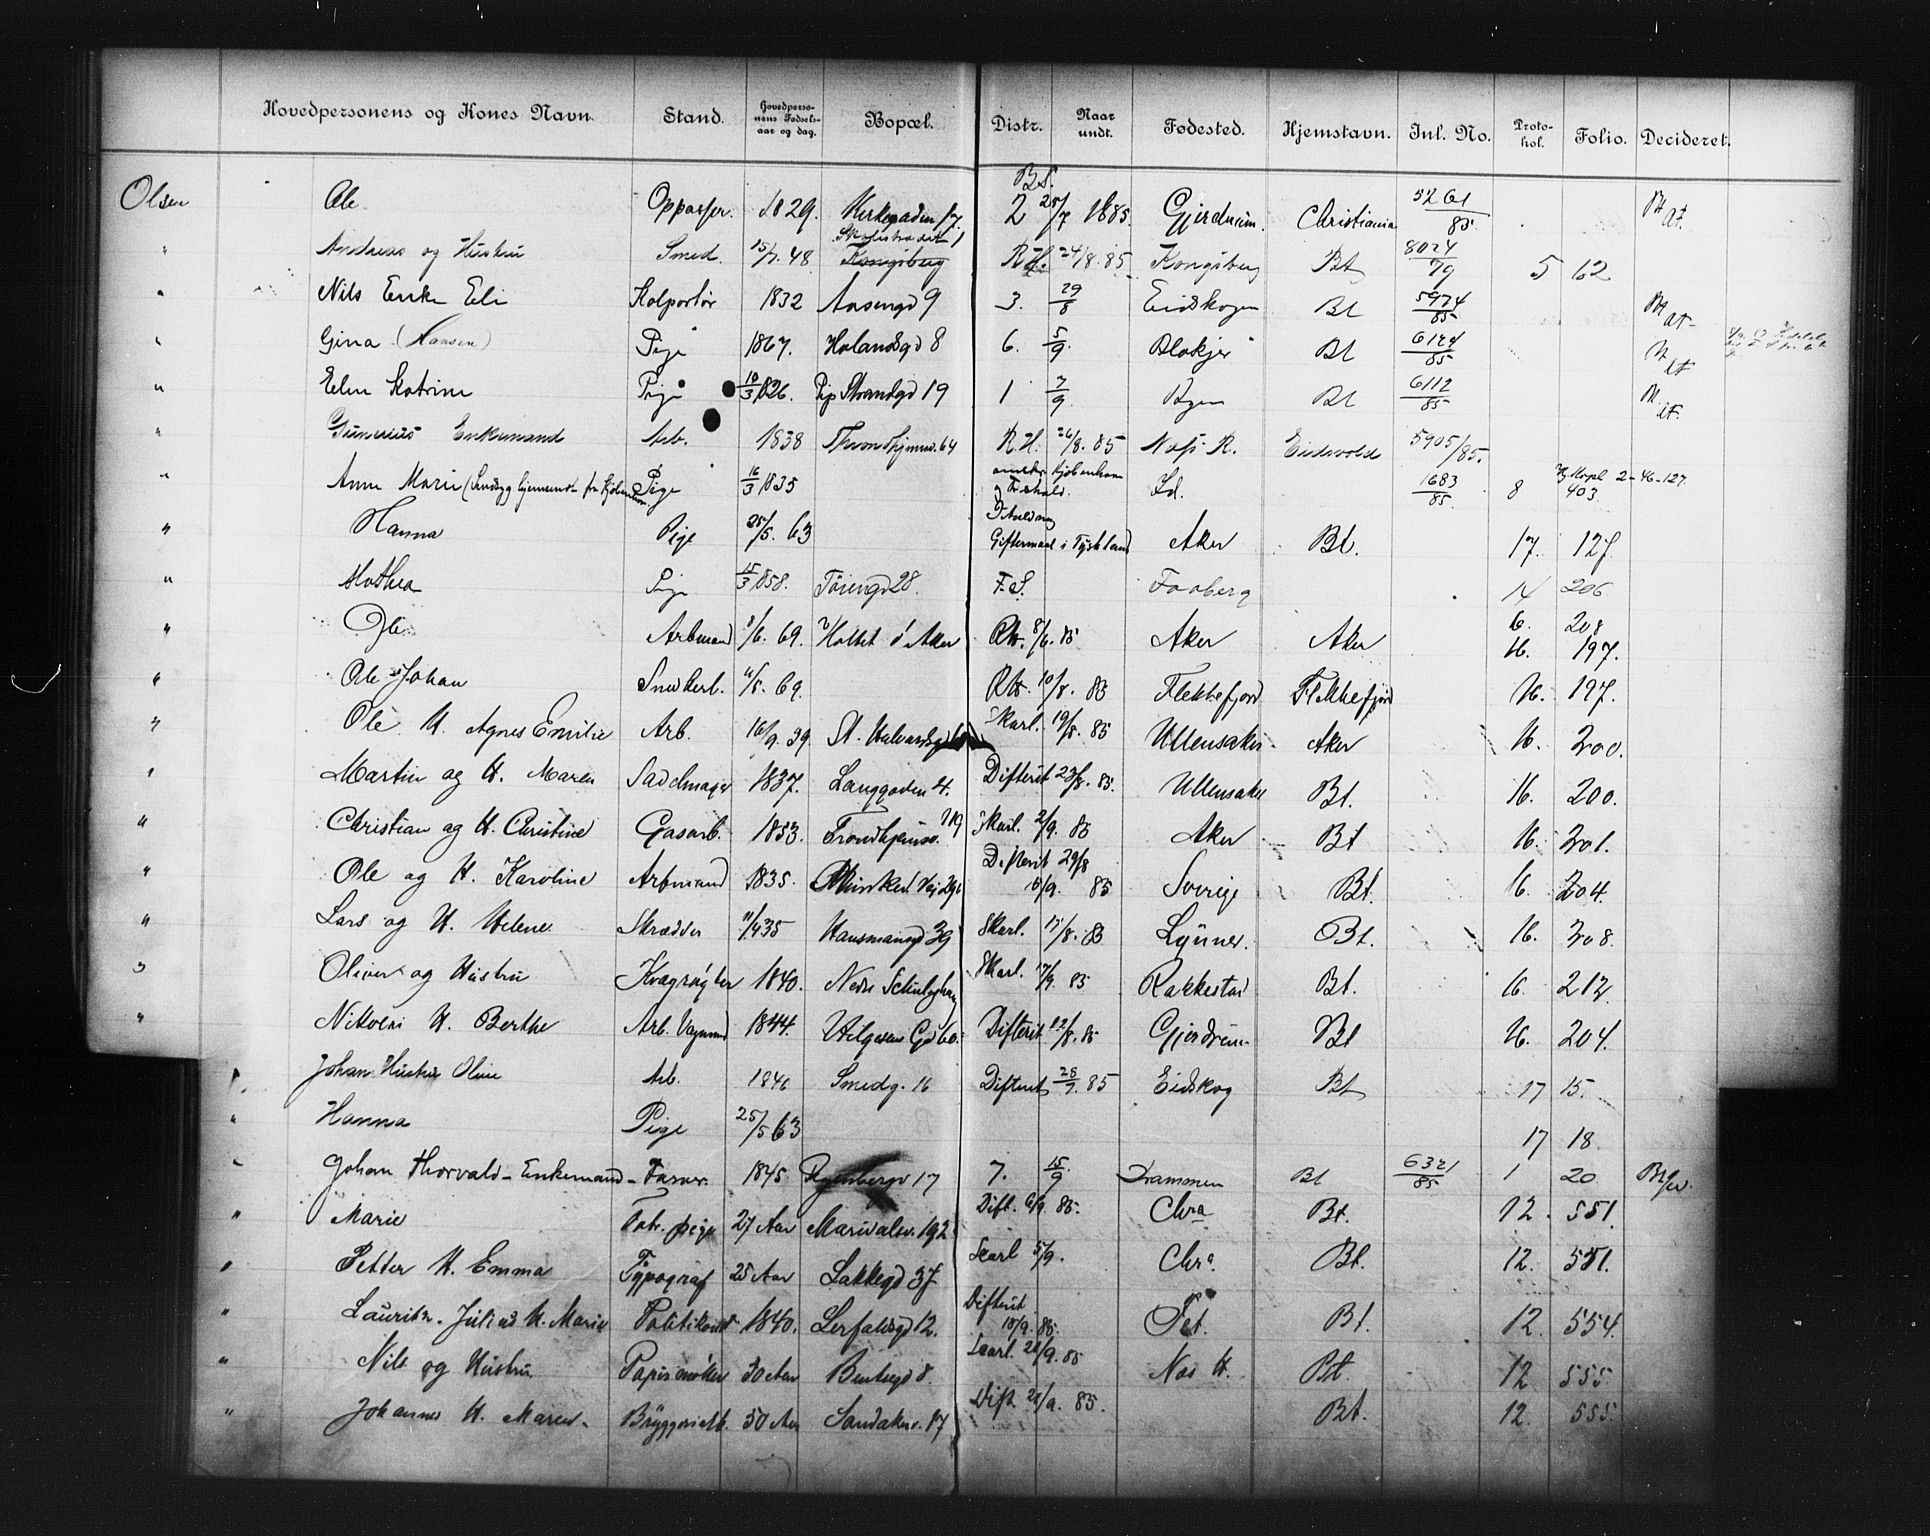 Hovedpersonens og Kones Navn. Stand. Hovedperso- nens Fødsels- aar og dag. Bopæl. Distr. Naar undt. Fødested. Hjemstavn. Inl. No. Proto- kol. Folio. Decideret.
Olsen Ole Oppasser. 1829. Kirkegaden 17. 2 25/7 1885. Gjerdrum. Christiania 5261/85
" Andreas og Hustru Smed. 15/7. 48 Kongsberg R.H. 24/8. 85. Kongsberg Bt 8024/79 5 62
" Nils Enke Eli Kolportør 1832 Aasengd 9 3. 29/8 Eidskogen Bt 5974/85
" Gina (Hansen) Pige 1867. Holandsgd 8 6. 5/9. Blakjer Bt 6124/85
" Elen Katrine Pige 10/3 1826. Pip Strandgd 19 1 7/9. Byen Bt 6112/85
" Gunerius Enkemand Arb. 1838 Throndhjemsv. 64 R.H. 26/8. 85 Næs R. Eidsvold 5905/85.
" Anne Marie (Sindsyg hjemsendt fra Kjøbenhavn Pige 16/3 1835 Kjøbenhavn 1683/85 8 403. 2-46-127.
" Hanna Pige 25/5. 63 Giftermaal i Tydskland Aker Bt. 17. 127.
" Mathea Pige 15/3 1858. Tøiengd 28. F.S. Faaberg 14 206
" Ole Arbmand 8/6. 69. Holtet i Aker 8/6. 85 Aker Aker 16. 208 16. 197.
" Ole Johan Snedkerl. 11/5. 69. 10/8. 85 Flekkefjord Flekkefjord 16. 197.
" Ole H. Agnes Emilie Arb. 16/9. 39. St. Halvardsgd Skarl. 19/8. 85 Ullensaker Aker 16. 200.
" Martin og H. Maren Sadelmager 1837. Langgaden 4. Difterit 23/8. 85. Ullensaker Bt. 16. 200.
" Christian og H. Christine Gasarb. 1853. Trondhjemsv. 119 Skarl. 2/9. 85 Aker Bt 16. 201.
" Ole og H. Karoline Arbmand 1835. Munked. Vei 29 Difterit 29/8 10/9. 85 Sverige Bt. 16. 204.
" Lars og H. Helene Skrædder 11/1 435 Hausmansgd 39 Skarl. 15/8. 85 Lynner. Bt. 16. 208.
" Oliver og Hustru Kvægrøgter 1840. Nedre Skarl. 17/9. 85 Rakkestad Bt. 16. 212.
" Nikolai H. Berthe Arb. Vognmd 1844. Hilgesens Gd 60. Difterit 12/8. 85 Gjerdrum Bt 16. 204.
" Johan Hustru Oline Arb. 1846 Smedg. 16 Difterit 25/9 85 Eidskog Bt 17 15.
" Hanna Pige 25/5 63 17 18.
" Johan Thorvald - Enkemand - Farver. 1845 Ryenbergv 17 7. 15/9 Drammen Bt 6321/85 1 20
" Marie Fab. pige 27 Aar Maridalsv. 192 Dift. 6/9. 85. Chra Bt. 12. 551.
" Petter H. Emma Typograf 25 Aar Lakkegd 37 Scarl 5/9. Chra. Bt. 12. 551.
" Lauritz. Julius H. Marie Politikonst 1840. Lerfaldsgd 12. Difterit 18/9. 85. Fet. Bt. 12. 554.
" Nils og Hustru Papirmøller 30 Aar Bentsegd 8. Scarl. 20/9. 85 Næs H. Bt. 12 555.
" Johannes H. Maren Bryggeriarb. 50 Aar Sandakerv. 17 Dift. 21/9. 85. Bt. 12. 555.